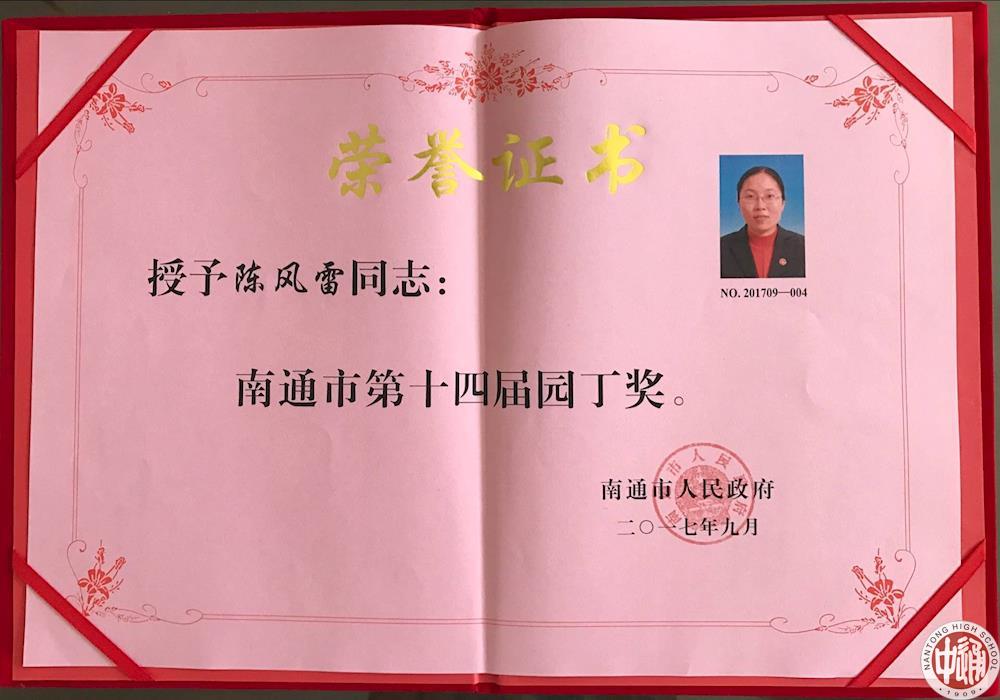 荣誉证书
NO. 201709—004
授予陈风雷同志：
南通市第十四届园丁奖。
南通市人民政府
二〇一七年九月
NANTONG HIGH SCHOOL
1909